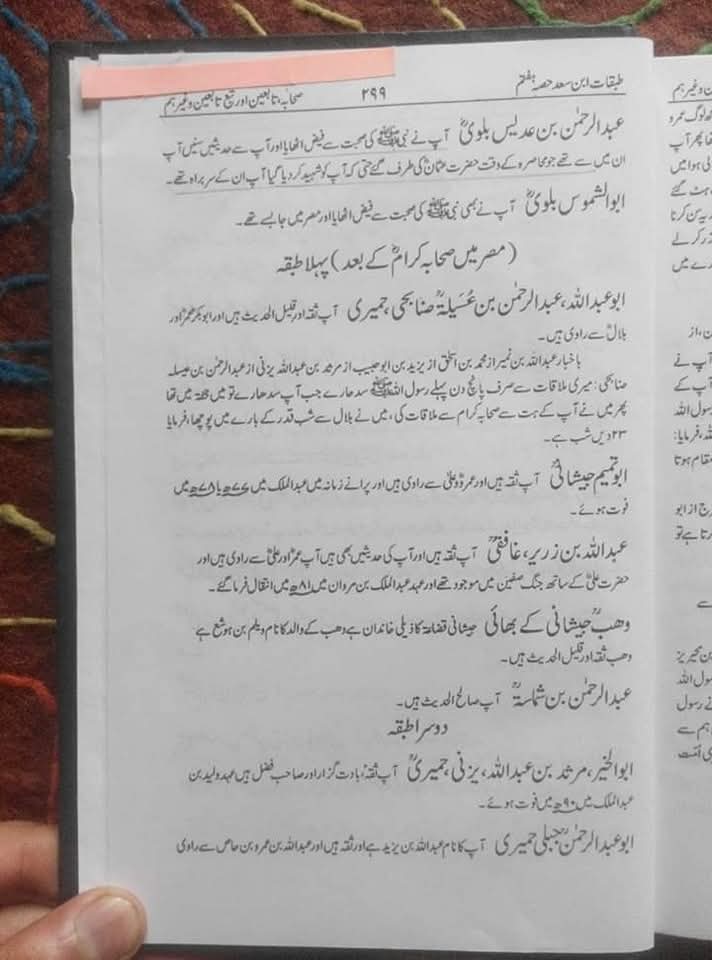 طبقات ابن سعد حصہ ہفتم
۲۹۹
صحابہ، تابعین اور تبع تابعین وغیرہم
عبدالرحمٰن بن عدیس بلویؓ آپ نے نبی ﷺ کی صحبت سے فیض اٹھایا اور آپ سے حدیثیں سنیں آپ
ان میں سے تھے جو محاصرہ کے وقت حضرت عثمانؓ کی طرف گئے حتیٰ کہ آپ کو شہید کر دیا گیا آپ ان کے سربراہ تھے۔
ابوالشموس بلویؓ آپ نے بھی نبی ﷺ کی صحبت سے فیض اٹھایا اور مصر میں جا بسے تھے۔
(مصر میں صحابہ کرامؓ کے بعد) پہلا طبقہ
ابوعبداللہ، عبدالرحمٰن بن عُسَیلۃؒ صنابحی، حمیری آپ ثقہ اور قلیل الحدیث ہیں اور ابوبکرؓ عمرؓ اور
بلالؓ سے راوی ہیں۔
باخبار عبداللہ بن نمیر از محمد بن اسحٰق از یزید بن ابوحبیب از مرثد بن عبداللہ یزنی از عبدالرحمٰن بن عسیلہ
صنابحی: میری ملاقات سے صرف پانچ دن پہلے رسول اللہ ﷺ سدھارے جب آپ سدھارے تو میں جحفہ میں تھا
پھر میں نے آپ کے بہت سے صحابہ کرام سے ملاقات کی، میں نے بلال سے شب قدر کے بارے میں پوچھا، فرمایا
۲۳ ویں شب ہے۔
ابوتمیم جیشانیؒ آپ ثقہ ہیں اور عمرؓ و علیؓ سے راوی ہیں اور پرانے زمانہ میں عبدالملک میں ۷۷ھ یا ۷۸ھ میں
فوت ہوئے۔
عبداللہ بن زریر، غافقیؒ آپ ثقہ ہیں اور آپ کی حدیثیں بھی ہیں آپ عمرؓ اور علیؓ سے راوی ہیں اور
حضرت علیؓ کے ساتھ جنگ صفین میں موجود تھے اور عہد عبدالملک بن مروان میں ۸۱ھ میں انتقال فرما گئے۔
وھبؒ جیشانی کے بھائی جیشانی قضاعۃ کا ذیلی خاندان ہے وھب کے والد کا نام دیلم بن ہوشع ہے
وھب ثقہ اور قلیل الحدیث ہیں۔
عبدالرحمٰن بن شماسۃؒ آپ صالح الحدیث ہیں۔
دوسرا طبقہ
ابوالخیر، مرثد بن عبداللہ، یزنی، حمیریؒ آپ ثقہ، عبادت گزار اور صاحب فضل ہیں عہد ولید بن
عبدالملک میں ۹۰ھ میں فوت ہوئے۔
ابوعبدالرحمٰنؒ حبلی حمیری آپ کا نام عبداللہ بن یزید ہے اور ثقہ ہیں اور عبداللہ بن عمرو بن عاص سے راوی